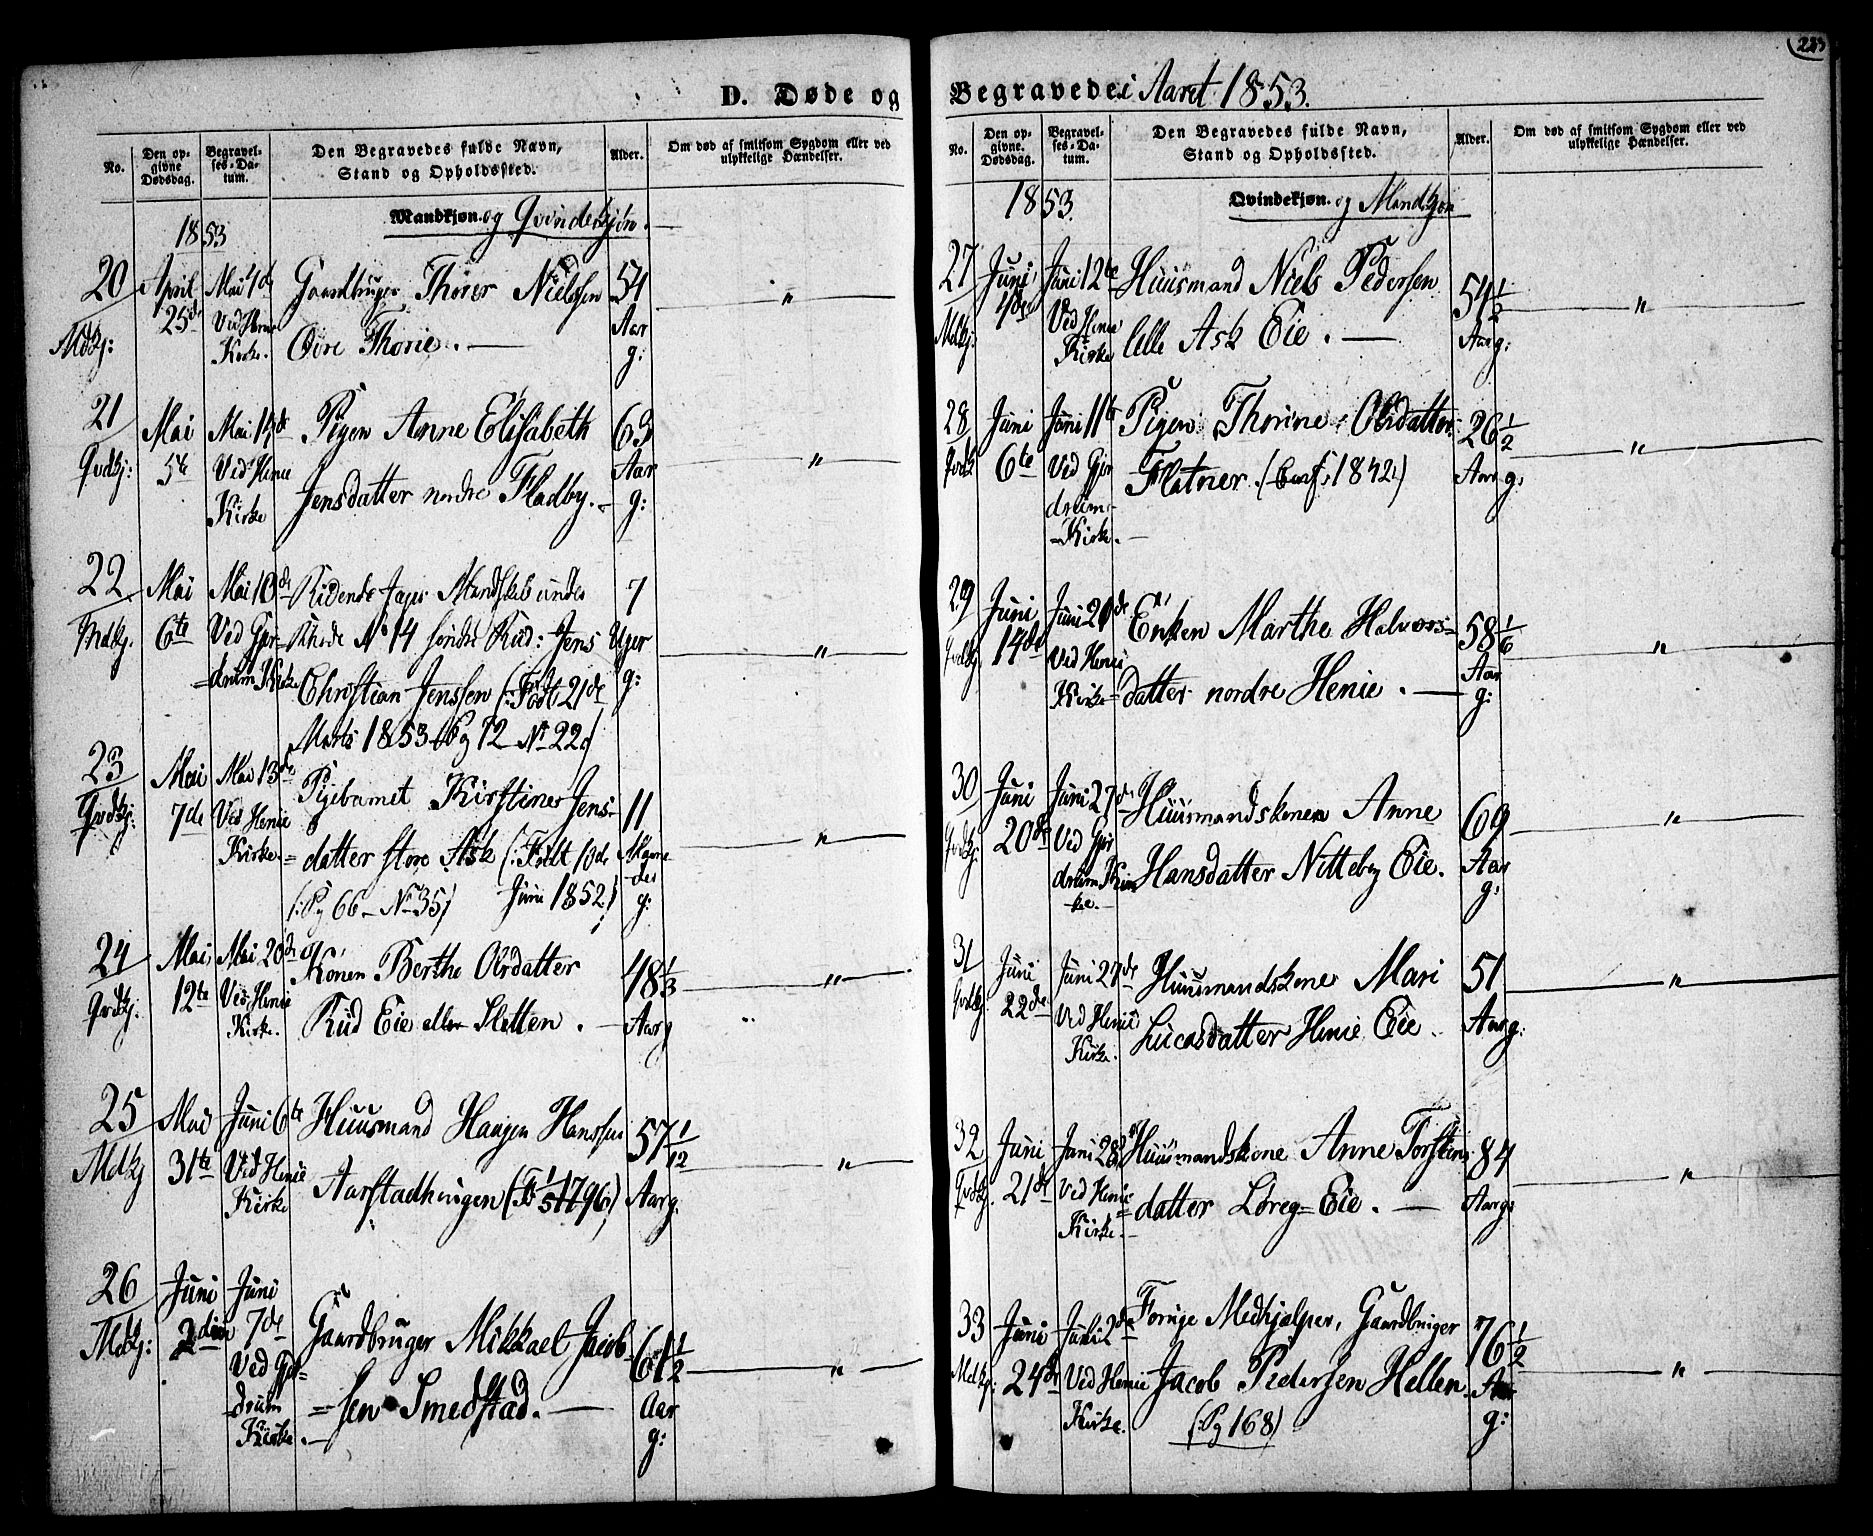 D. Døde og
No.
Den op-
givne
Dødsdag.
Begravel-
ses-Da-
tum.
Den Begravedes fulde Navn,
Stand og Opholdssted.
Alder.
Om død af smitsom Sygdom eller ved
ulykkelige Hændelser.
1853
Mandkjøn. og Qvindekjøn.
20 April Mai 4de Gaardbruger Thorer Nielssen 54
25de Ved Henie Aar
Mdkj: Kirke. Øvre Thorie. — g:
21 Mai Mai 14de Pigen Anne Elisabeth 63
Qvdkj: 5te Ved Henie Aar
Kirke Jensdatter nordre Fladby. — g:
22 Mai Mai 18de Ridende Jæger Mandskab under 7
Mdkj. 6te Ved Gjer= Rhode No 14 søndre Rud: Jens Uger
=drum Kirke Christian Jenssen (: Født 21de g:
Marts 1853 Pg 12 No 22:)
23 Mai Mai 13de Pigebarnet Kirstine Jens= 11
Qvdkj: 7de Ved Henie
Kirke =datter store Ask (: Født 10de Maane-
der
(: Pg 66 - No 35) Juni 1852:) g:
24 Mai Mai 20de Konen Berthe Olsdatter 48 1/3
Qvdkj. 12te Ved Henie
Kirke. Rud Eie eller Sletten. — Aar g
25 Mai Juni 6te Huusmand Haagen Hanssen 57 1/12
Mdkj 31te Ved Henie
Kirke Aarstadhaugen 1796) Aar g.
26 Juni Juni
Mdkj: 2den 7de Gaardbruger Mikkael Jacob= 61 1/2
Ved Gjer=
drum =sen Smedstad. — Aar
Kirke. — g:
Begravede i Aaret 1853.
No.
Den op-
givne
Dødsdag.
Begravel-
ses-Da-
tum.
Den Begravedes fulde Navn,
Stand og Opholdssted.
Alder.
Om død af smitsom Sygdom eller ved
ulykkelige Hændelser.
1853.
Qvindekjøn. og Mandkjøn
27 Juni Juni 12te Huusmand Niels Pedersen 54 1/2
4de Ved Henie
Mdkj: Kirke lille Ask Eie. — Aar g:
28 Juni Juni 11te Pigen Thorine Olsdatter 26 1/2
Qvdkj 6te Ved Gjer Flatner. (Conf. 1842.) Aar g:
drum-
-Kirke. —
29 Juni Juni 20de Enken Marthe Halvors= 58 1/6
Qvdkj 14de Ved Henie Aar
Kirke =datter nordre Henie. — g:
30 Juni Juni 27de Huusmandskonen Anne 69
Qvdkj. 20de Ved Gjer
drum Kir= Hansdatter Nitteby Eie. Aar
ke. — g:
31 Juni Juni 27de Huusmandskone Mari 51
Qvdkj. 22de Ved Henie
Kirke. Lucasdatter Henie Eie. Aar g:
32 Juni Juni 28de Huusmandskone Anne Torstens 84
Qvdkj. 21de Ved Henie
Kirke. =datter Løreg= Eie. — Aar g:
33 Juni Juli 2de Forrige Medhjælper, Gaardbruger 76 1/2
Mdkj: 24de Ved Henie Jacob Pedersen Hellen Aar
Kirke. (: Pg 168) g: